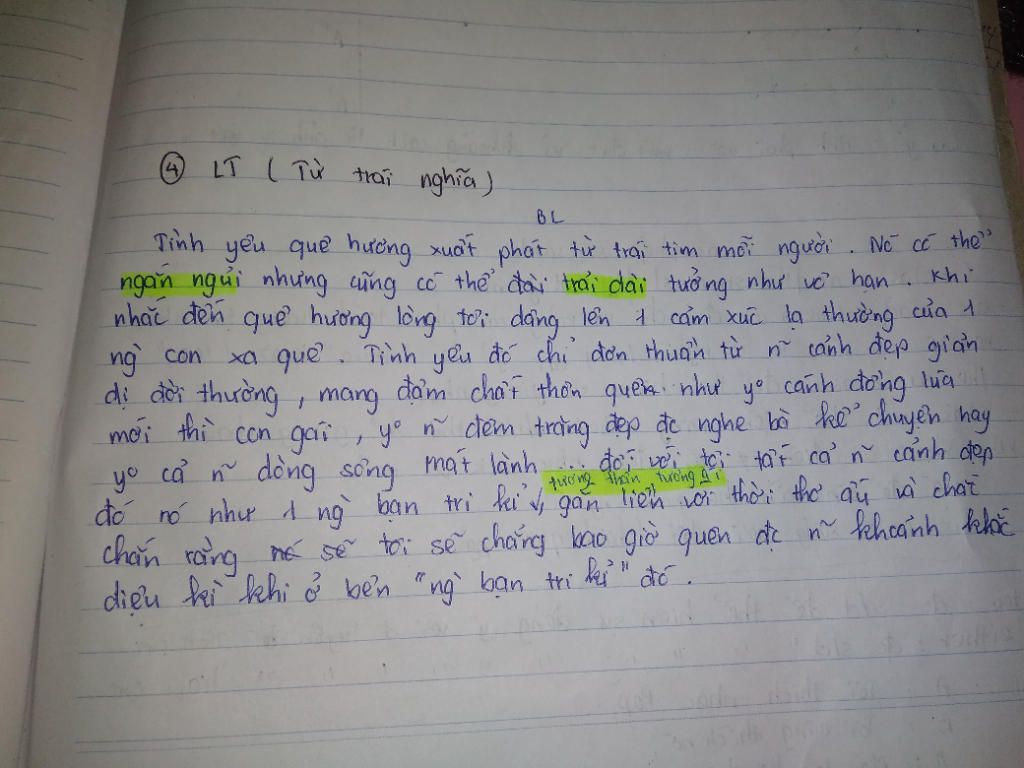 ④ LT ( Từ trái nghĩa )
BL
Tình yêu quê hương xuất phát từ trái tim mỗi người . Nó có thể
ngắn ngủi nhưng cũng có thể dài trải dài tưởng như vô hạn . Khi
nhắc đến quê hương lòng tôi dâng lên 1 cảm xúc lạ thường của 1
ng` con xa quê . Tình yêu đó chỉ đơn thuần từ n~ cảnh đẹp giản
dị đời thường , mang đậm chất thôn quên như y° cánh đồng lúa
mới thì con gái , y° n~ đêm trăng đẹp đc nghe bà kể chuyện hay
y° cả n~ dòng sông mát lành ... đối với tôi tất cả n~ cảnh đẹp
tương thân tương ái
đó nó như 1 ng` bạn tri kỉ , gắn liền với thời thơ ấu và chắc
chắn rằng nó sẽ tôi sẽ chẳng bao giờ quên đc n~ khoảnh khắc
diệu kì khi ở bên "ng` bạn tri kỉ" đó .